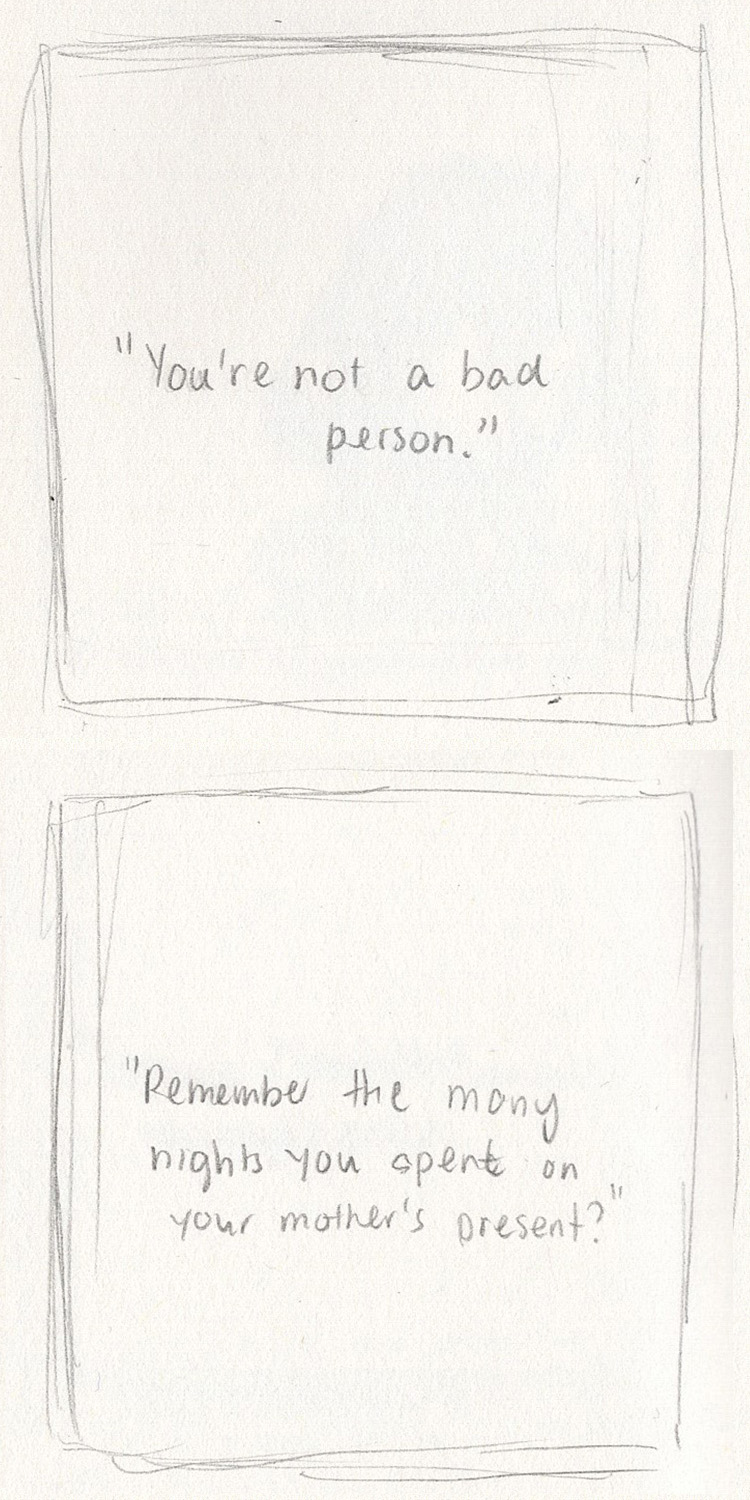 "You're not a bad
person."
"Remember the many
nights you spent on
your mother's present?"